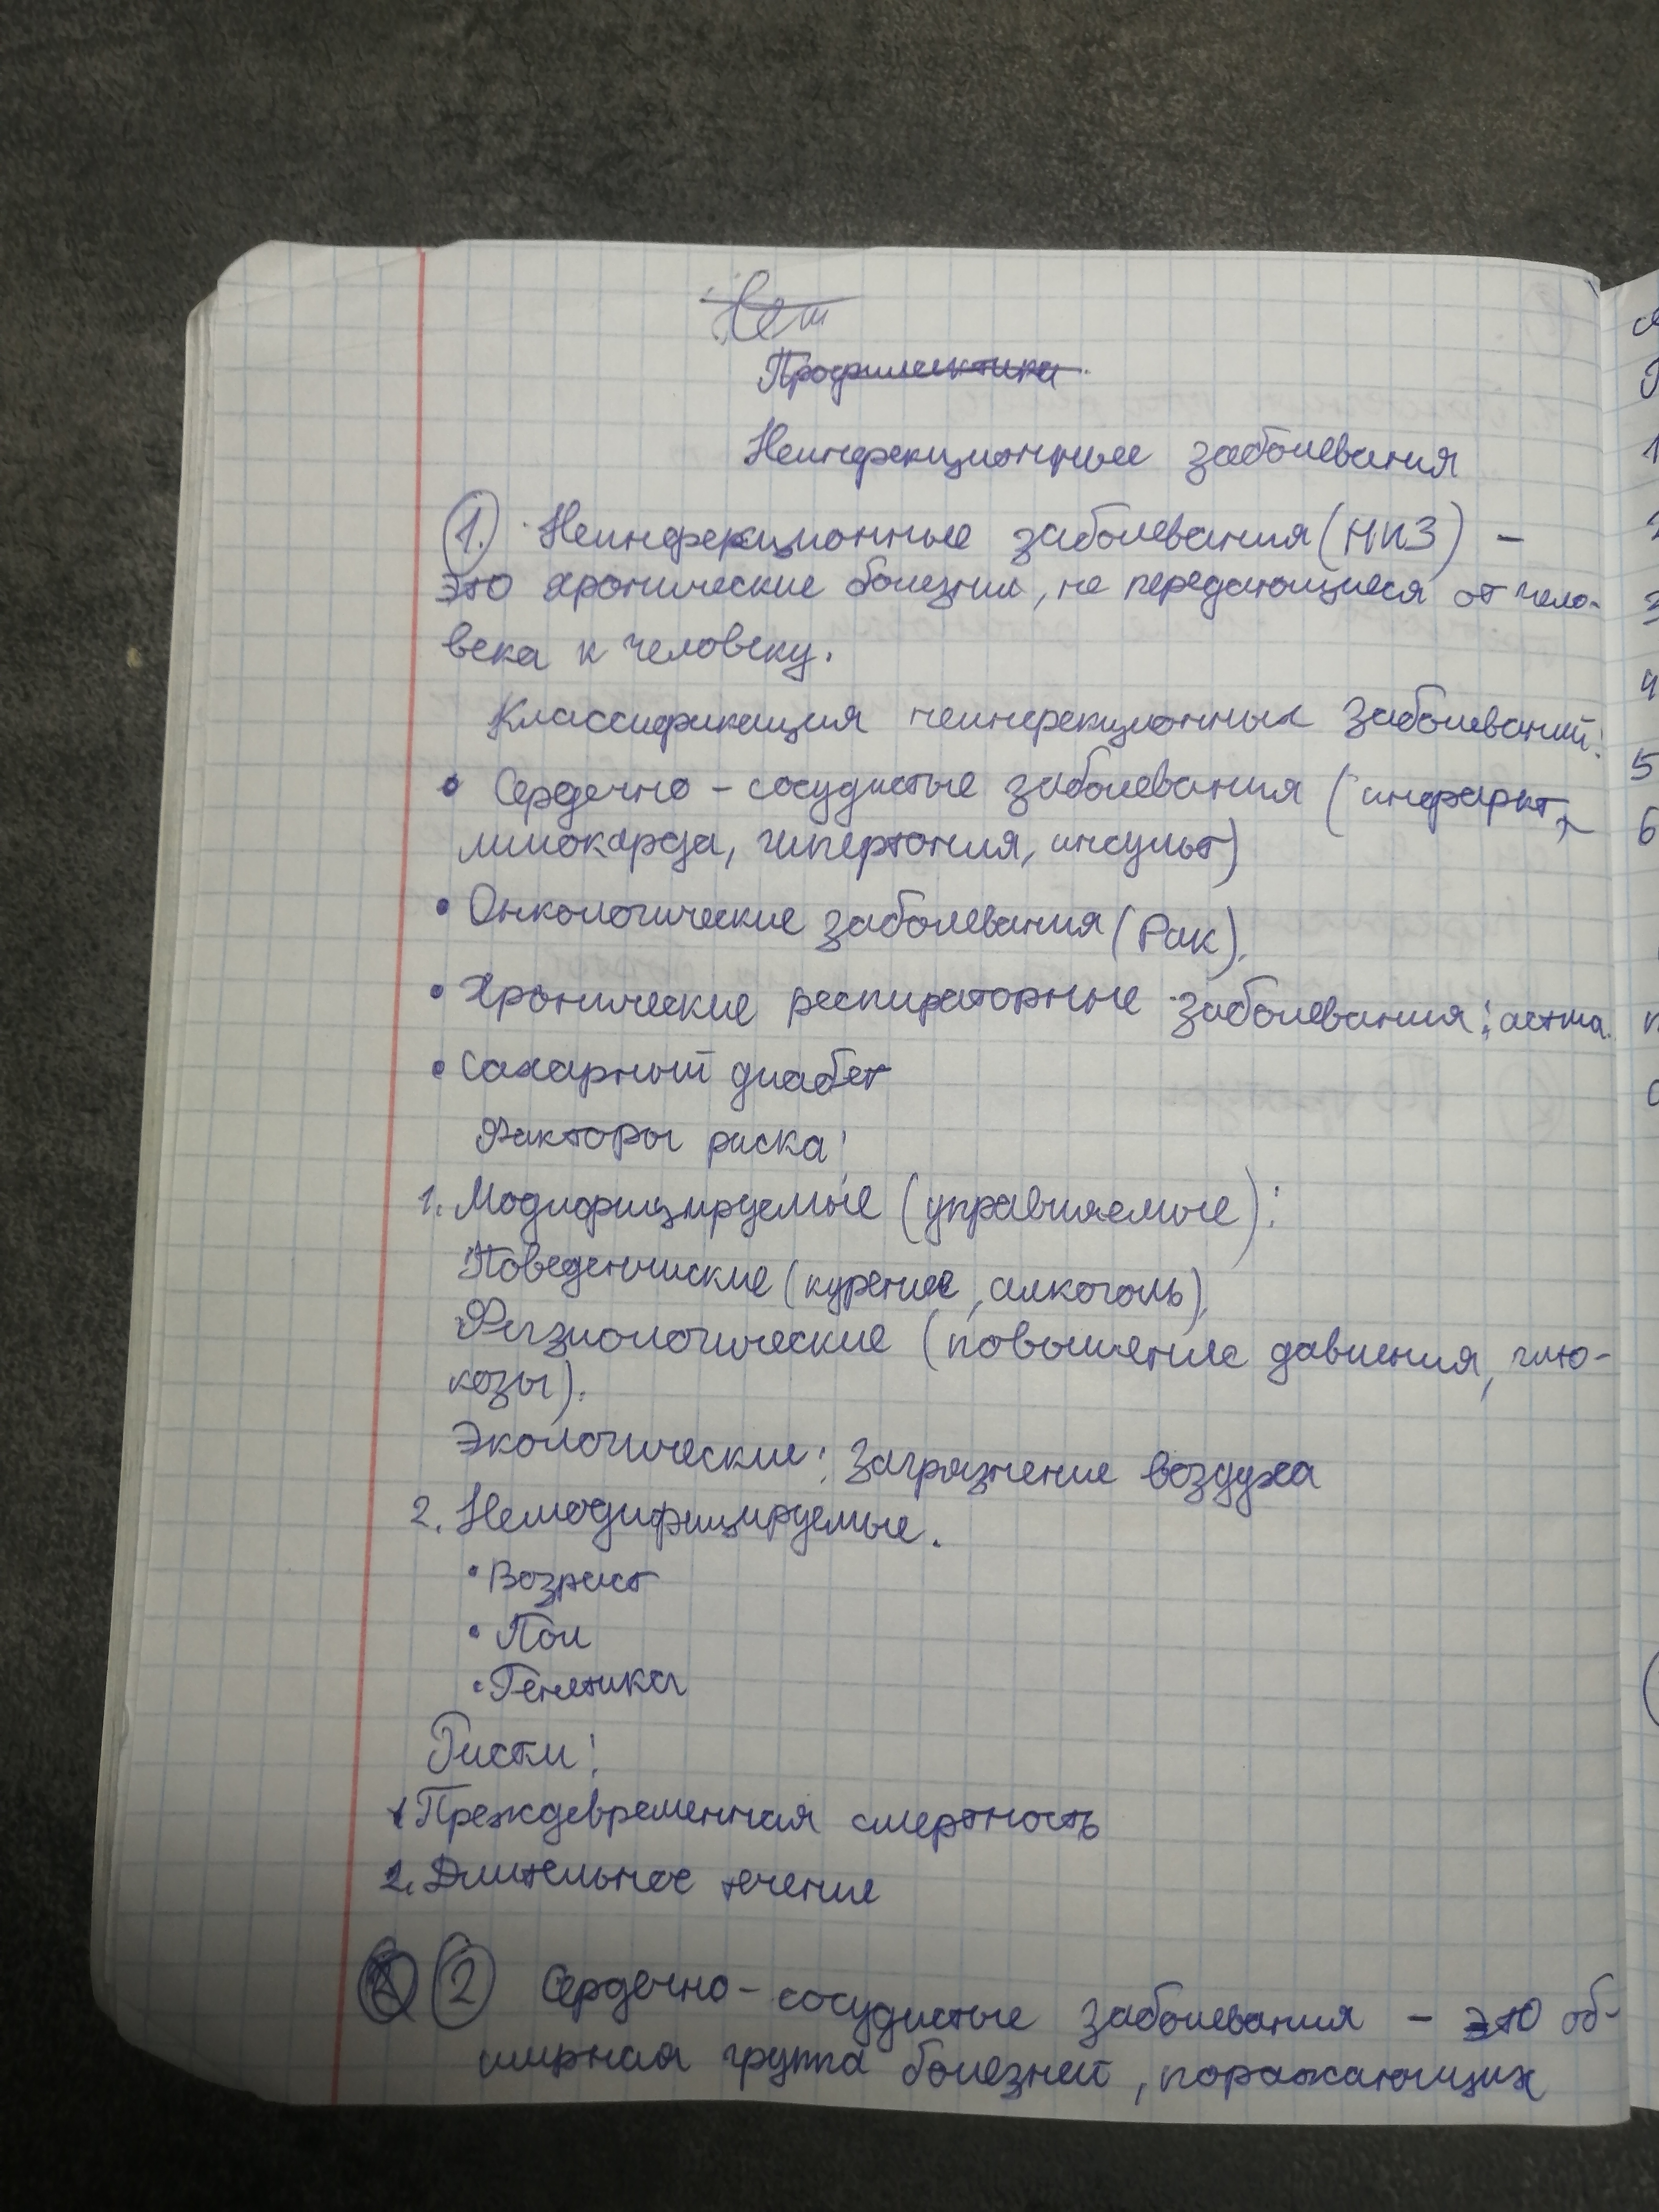 Неинфекционные заболевания
1. Неинфекционные заболевания (НИЗ) –
это хронические болезни, не передающиеся от чело-
века к человеку.
Классификация неинфекционных заболеваний:
• Сердечно – сосудистые заболевания (инфаркт
миокарда, гипертония, инсульт)
• Онкологические заболевания (Рак).
• Хронические респираторные заболевания: астма.
• Сахарный диабет
Факторы риска:
1. Модифицируемые (управляемые):
Поведенчиские (курение, алкоголь),
Физиологические (повышение давления, глю-
козы).
Экологические: Загрязнение воздуха
2. Немодифицируемые.
• Возраст
• Пол
• Генетика
1 Преждевременная смертность
2. Длительное течение
2 Сердечно – сосудистые заболевания – это об-
ширная группа болезней, поражающих